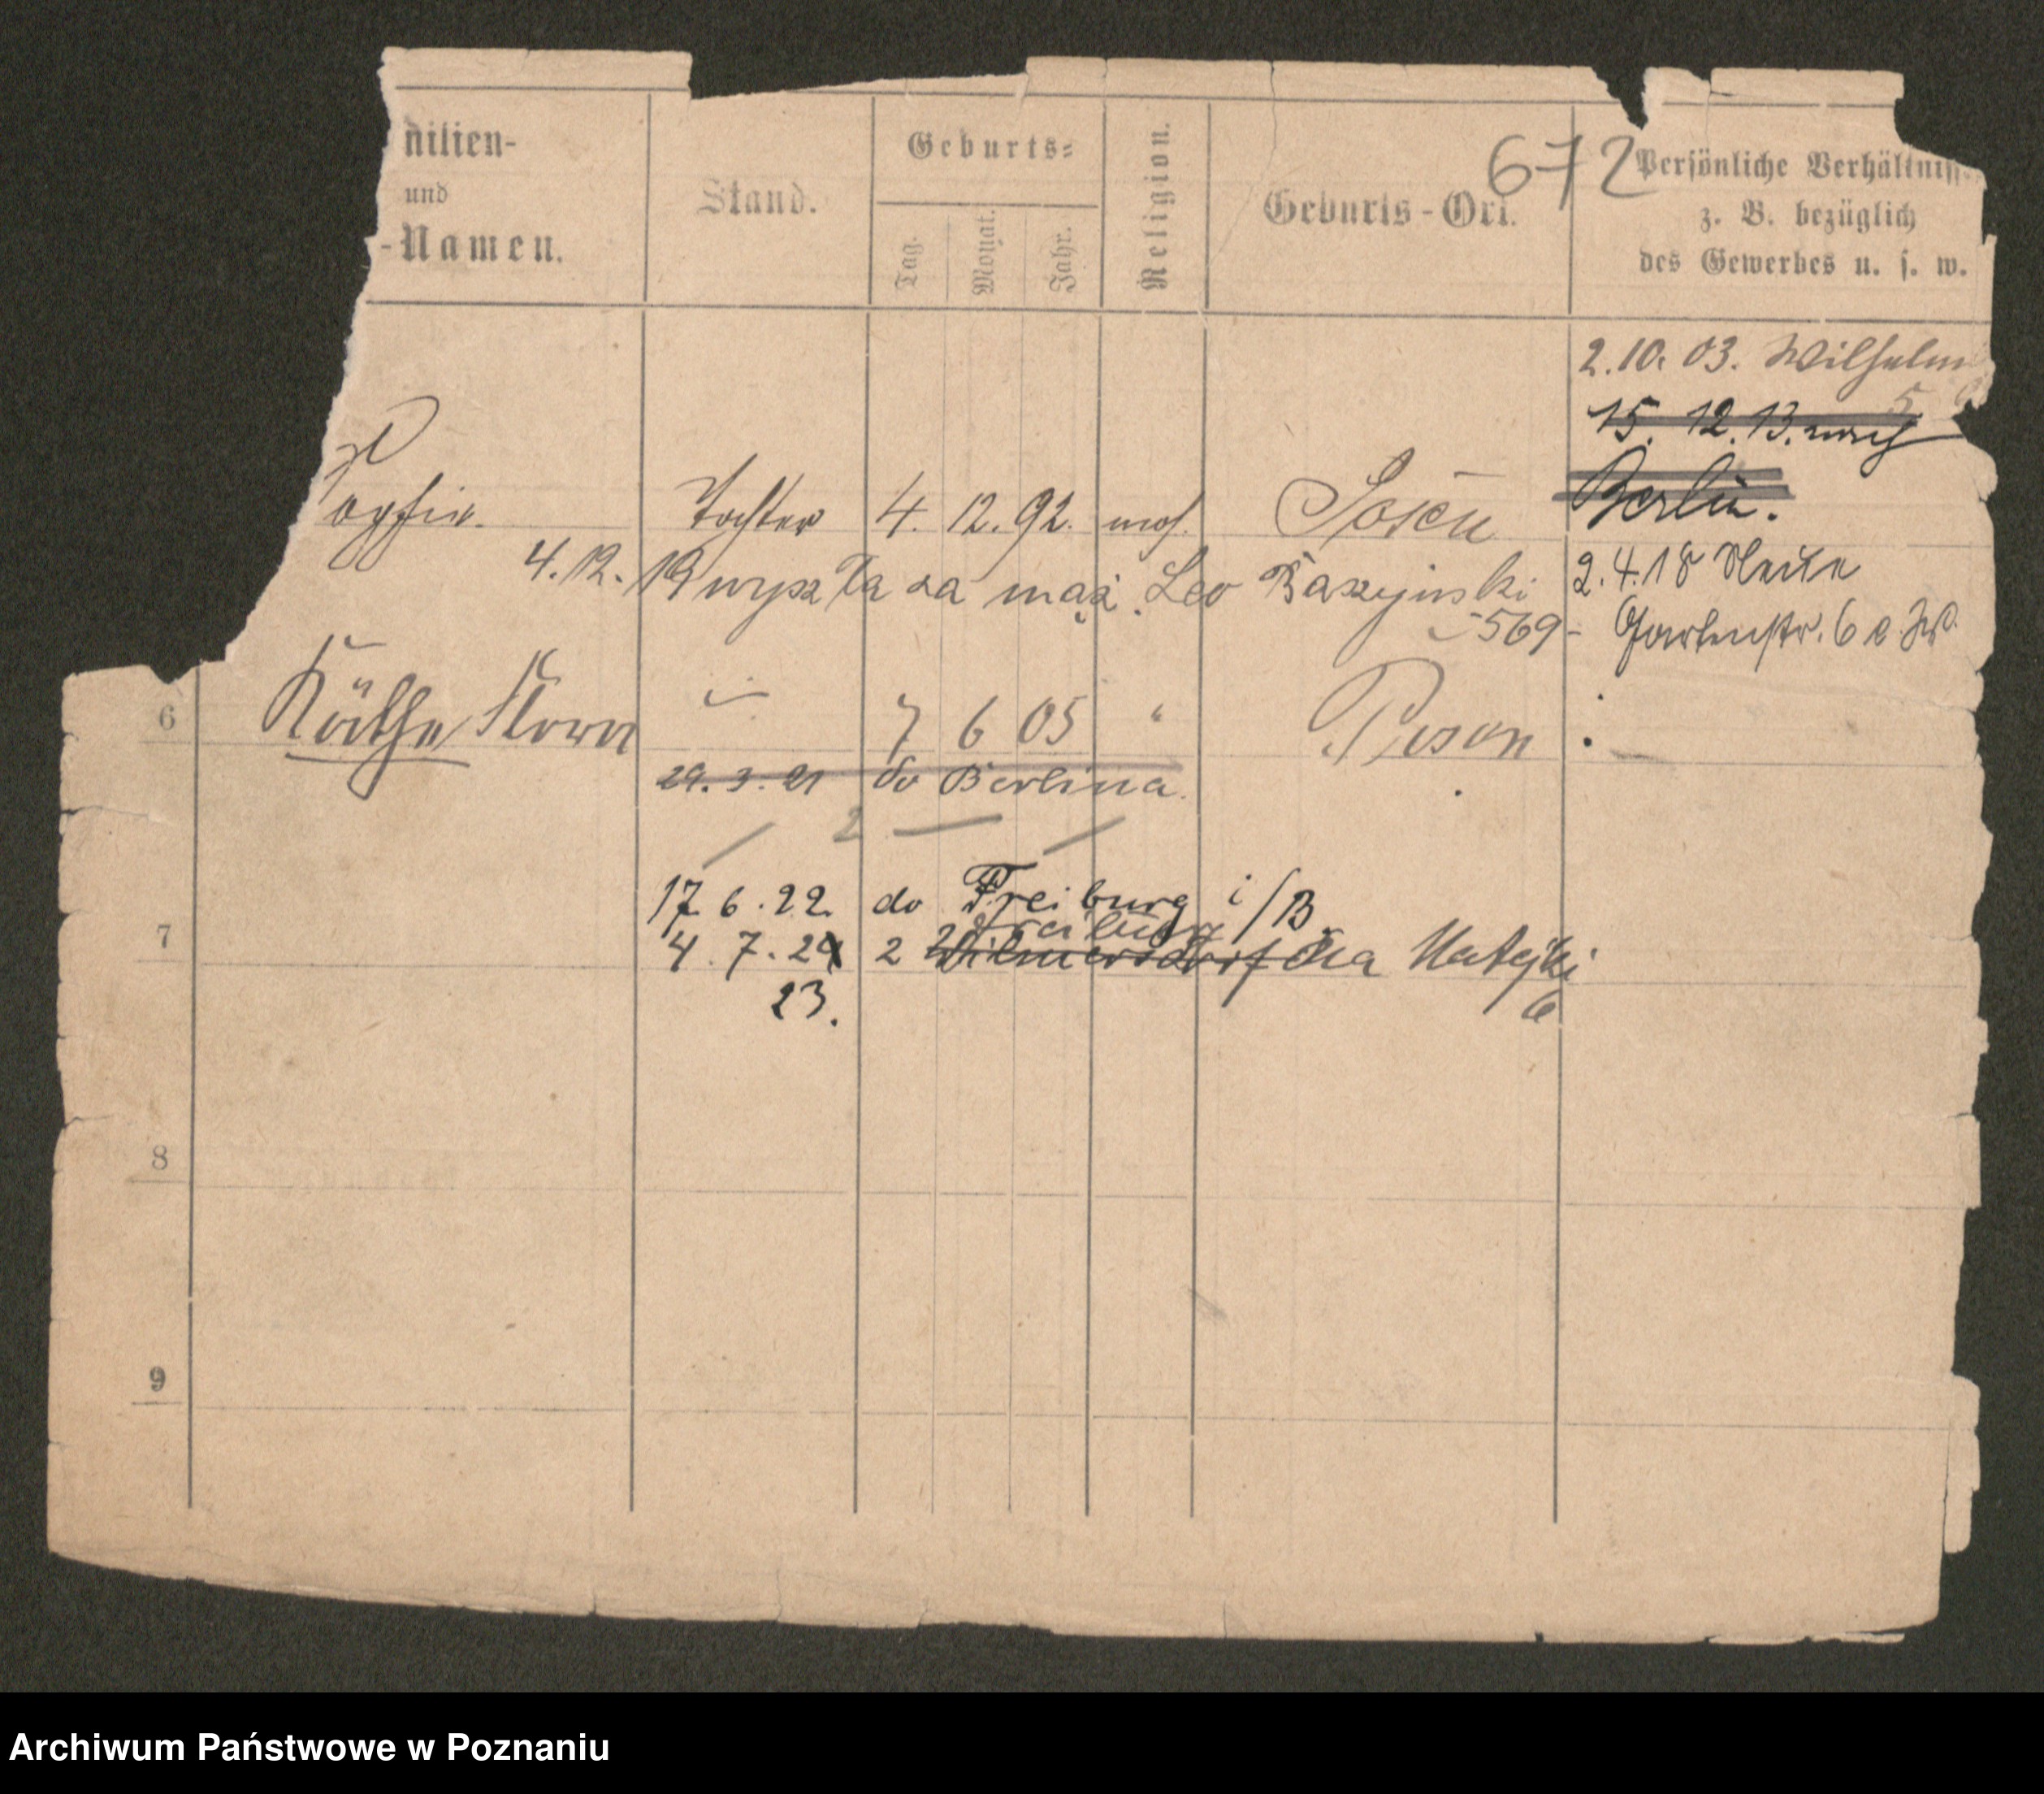 nilien-
und
-Namen.
Stand.
Geburts-
Tag.
Monat.
Jahr.
Religion.
Geburts-Ort.
672
Persönliche Verhältniss
z. B. bezüglich
des Gewerbes u. s. w.
2.10.03. Wilhelm
5
15. 12. 13. nach
Berlin.
Tochter 4. 12. 92. mos.
4.12.19 wyszła za mąż. Leo Baszynski
-569-
2.4.18
Gartenstr. 6
6 Käthe Flora 7 6 05 " Posen
29.3.21 do Berlina.
2
17.6.22. do Freiburg i/B
Freiburg
7
4.7.24 2 Wilmersdorf Matejki
23. 6
8
9
Archiwum Państwowe w Poznaniu